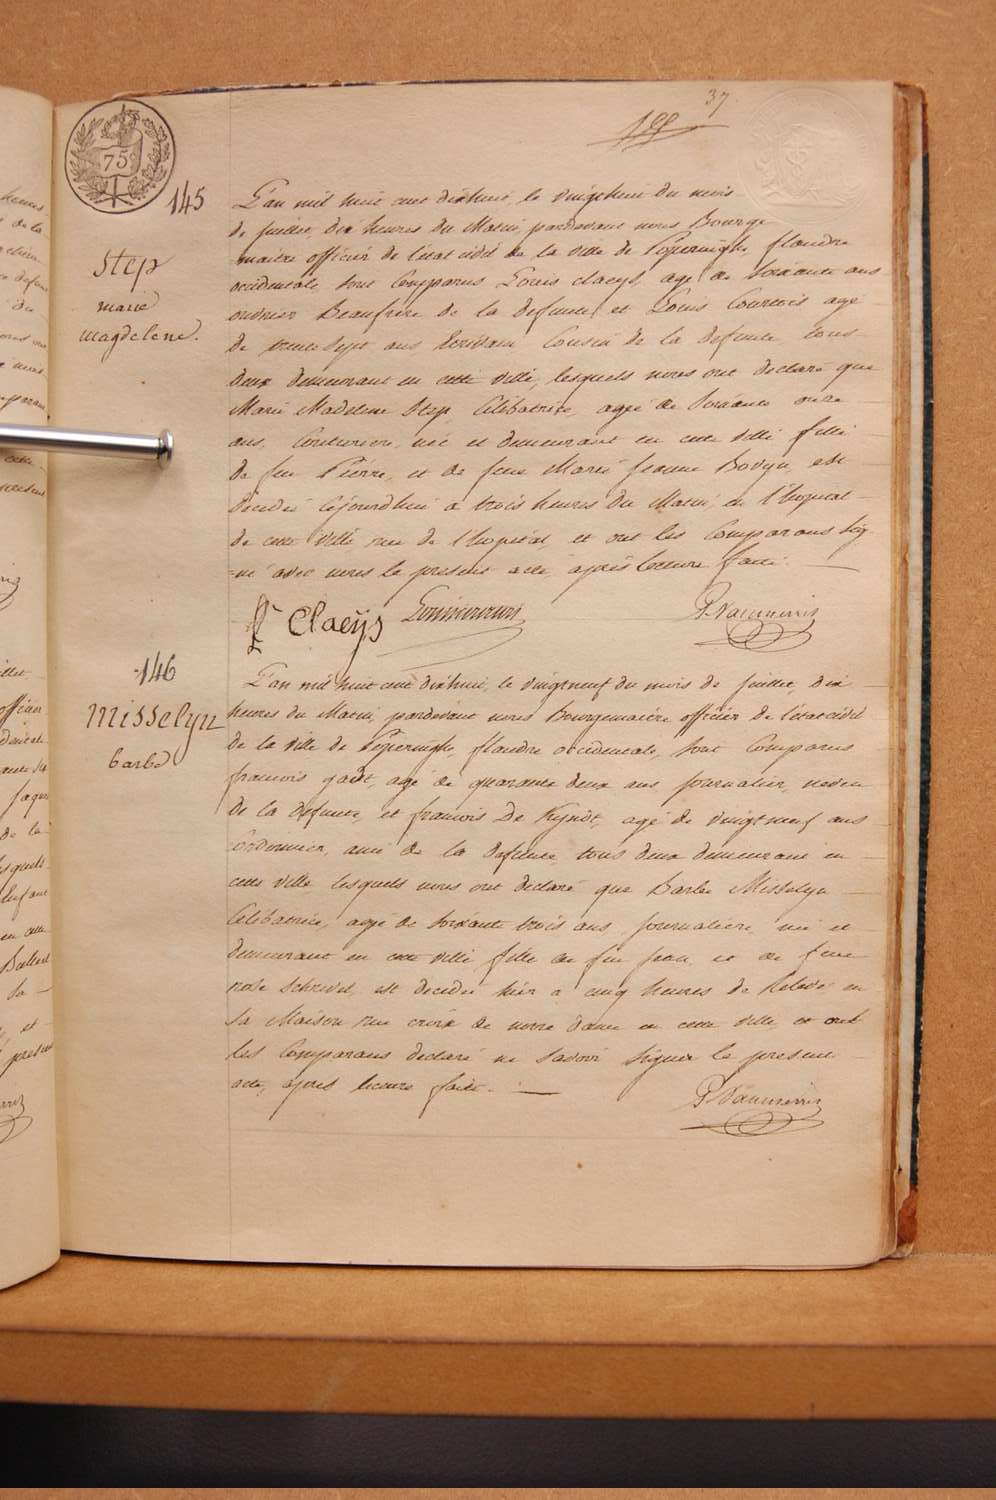 37
75
145
Step
marie
magdelene.
L'an mil huit cent dixhuit, le vingthuit du mois
de juillet, dix heures du Matin, pardevant nous Bourge
maitre officier de l'état civil de la ville de Poperinghe, flandre
occidentale, sont Comparus Louis claeys, agé de soixante ans
ouvrier Beaufrère de la defunte, et Louis Courtois agé
de trente sept ans Ecrivain Cousin de la defunte, tous
deux demeurant en cette ville, lesquels nous ont declaré que
Marie Madelene Step, Célibatrice, agée de soixante onze
ans, Couturiere, née et demeurant en cette ville fille
de feu Pierre, et de feue Marie Jeanne est
décédée cejourdhui a trois heures du Matin, en l'hopital
de cette ville rue de l'hopital, et ont les Comparans sig-
=né avec nous le present acte, après lecture faite.
Claeys
146
Misselyn
barbe
L'an mil huit cent dixhuit, le vingtneuf du mois de juillet, dix
heures du Matin, pardevant nous Bourgemaitre officier de l'état civil
de la ville de Poperinghe, flandre occidentale, sont Comparus
francois agé de quarante deux ans journalier, neveu
de la defunte, et francois De Kyndt, agé de vingtneuf ans
Cordonnier, ami de la defunte, tous deux demeurant en
cette ville lesquels nous ont declaré que Barbe Misselyn
Célibatrice, agée de soixante trois ans, journaliere, née et
demeurant en cette ville, fille de feu jean, et de feue
rose est decedée hier a cinq heures de Relevée en
sa Maison rue croix de notre dame en cette ville, et ont
les Comparans declaré ne savoir signer le present
acte, après lecture faite.